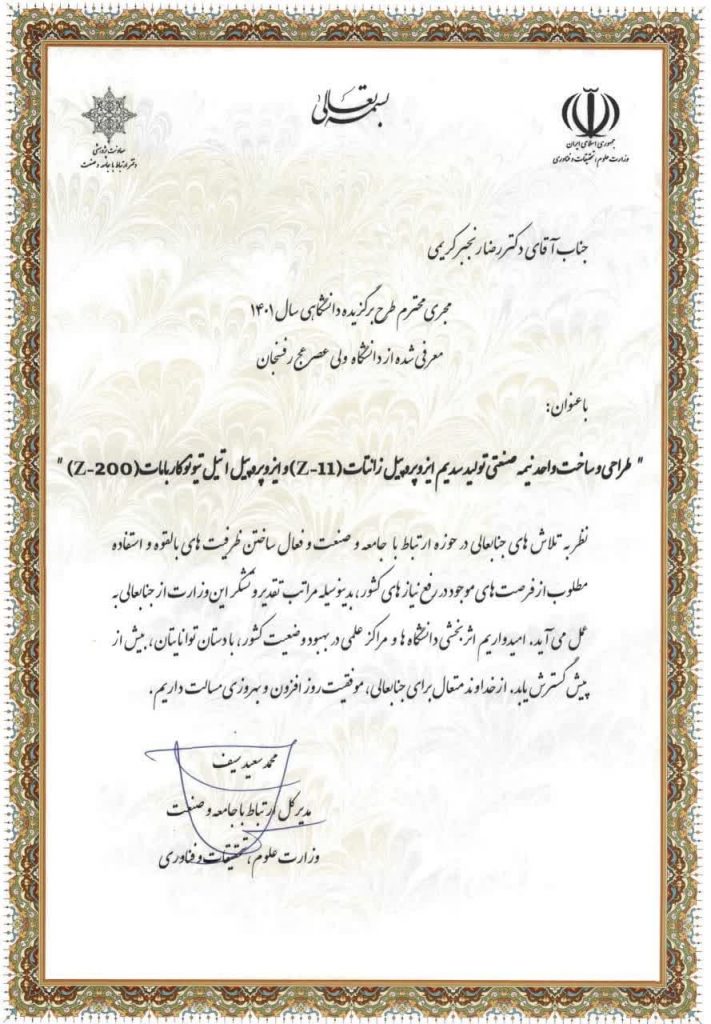 بسمه تعالی
جمهوری اسلامی ایران
وزارت علوم، تحقیقات و فناوری
معاونت پژوهشی
دفتر ارتباط با جامعه و صنعت
جناب آقای دکتر رضا رنجبر کریمی
مجری محترم طرح برگزیده دانشگاهی سال ۱۴۰۱
معرفی شده از دانشگاه ولی عصر عج رفسنجان
با عنوان:
" طراحی و ساخت واحد نیمه صنعتی تولید سدیم ایزوپروپیل زانتات (Z-11) و ایزوپروپیل اتیل تیونوکاربامات (Z-200) "
نظر به تلاش های جنابعالی در حوزه ارتباط با جامعه و صنعت و فعال ساختن ظرفیت های بالقوه و استفاده
مطلوب از فرصت های موجود در رفع نیازهای کشور، بدینوسیله مراتب تقدیر و تشکر این وزارت از جنابعالی به
عمل می آید. امیدواریم اثربخشی دانشگاه ها و مراکز علمی در بهبود وضعیت کشور، با دستان توانایتان، بیش از
پیش گسترش یابد. از خداوند متعال برای جنابعالی، موفقیت روز افزون و بهروزی مسالت داریم.
محمد سعید سیف
مدیر کل ارتباط با جامعه و صنعت
وزارت علوم، تحقیقات و فناوری